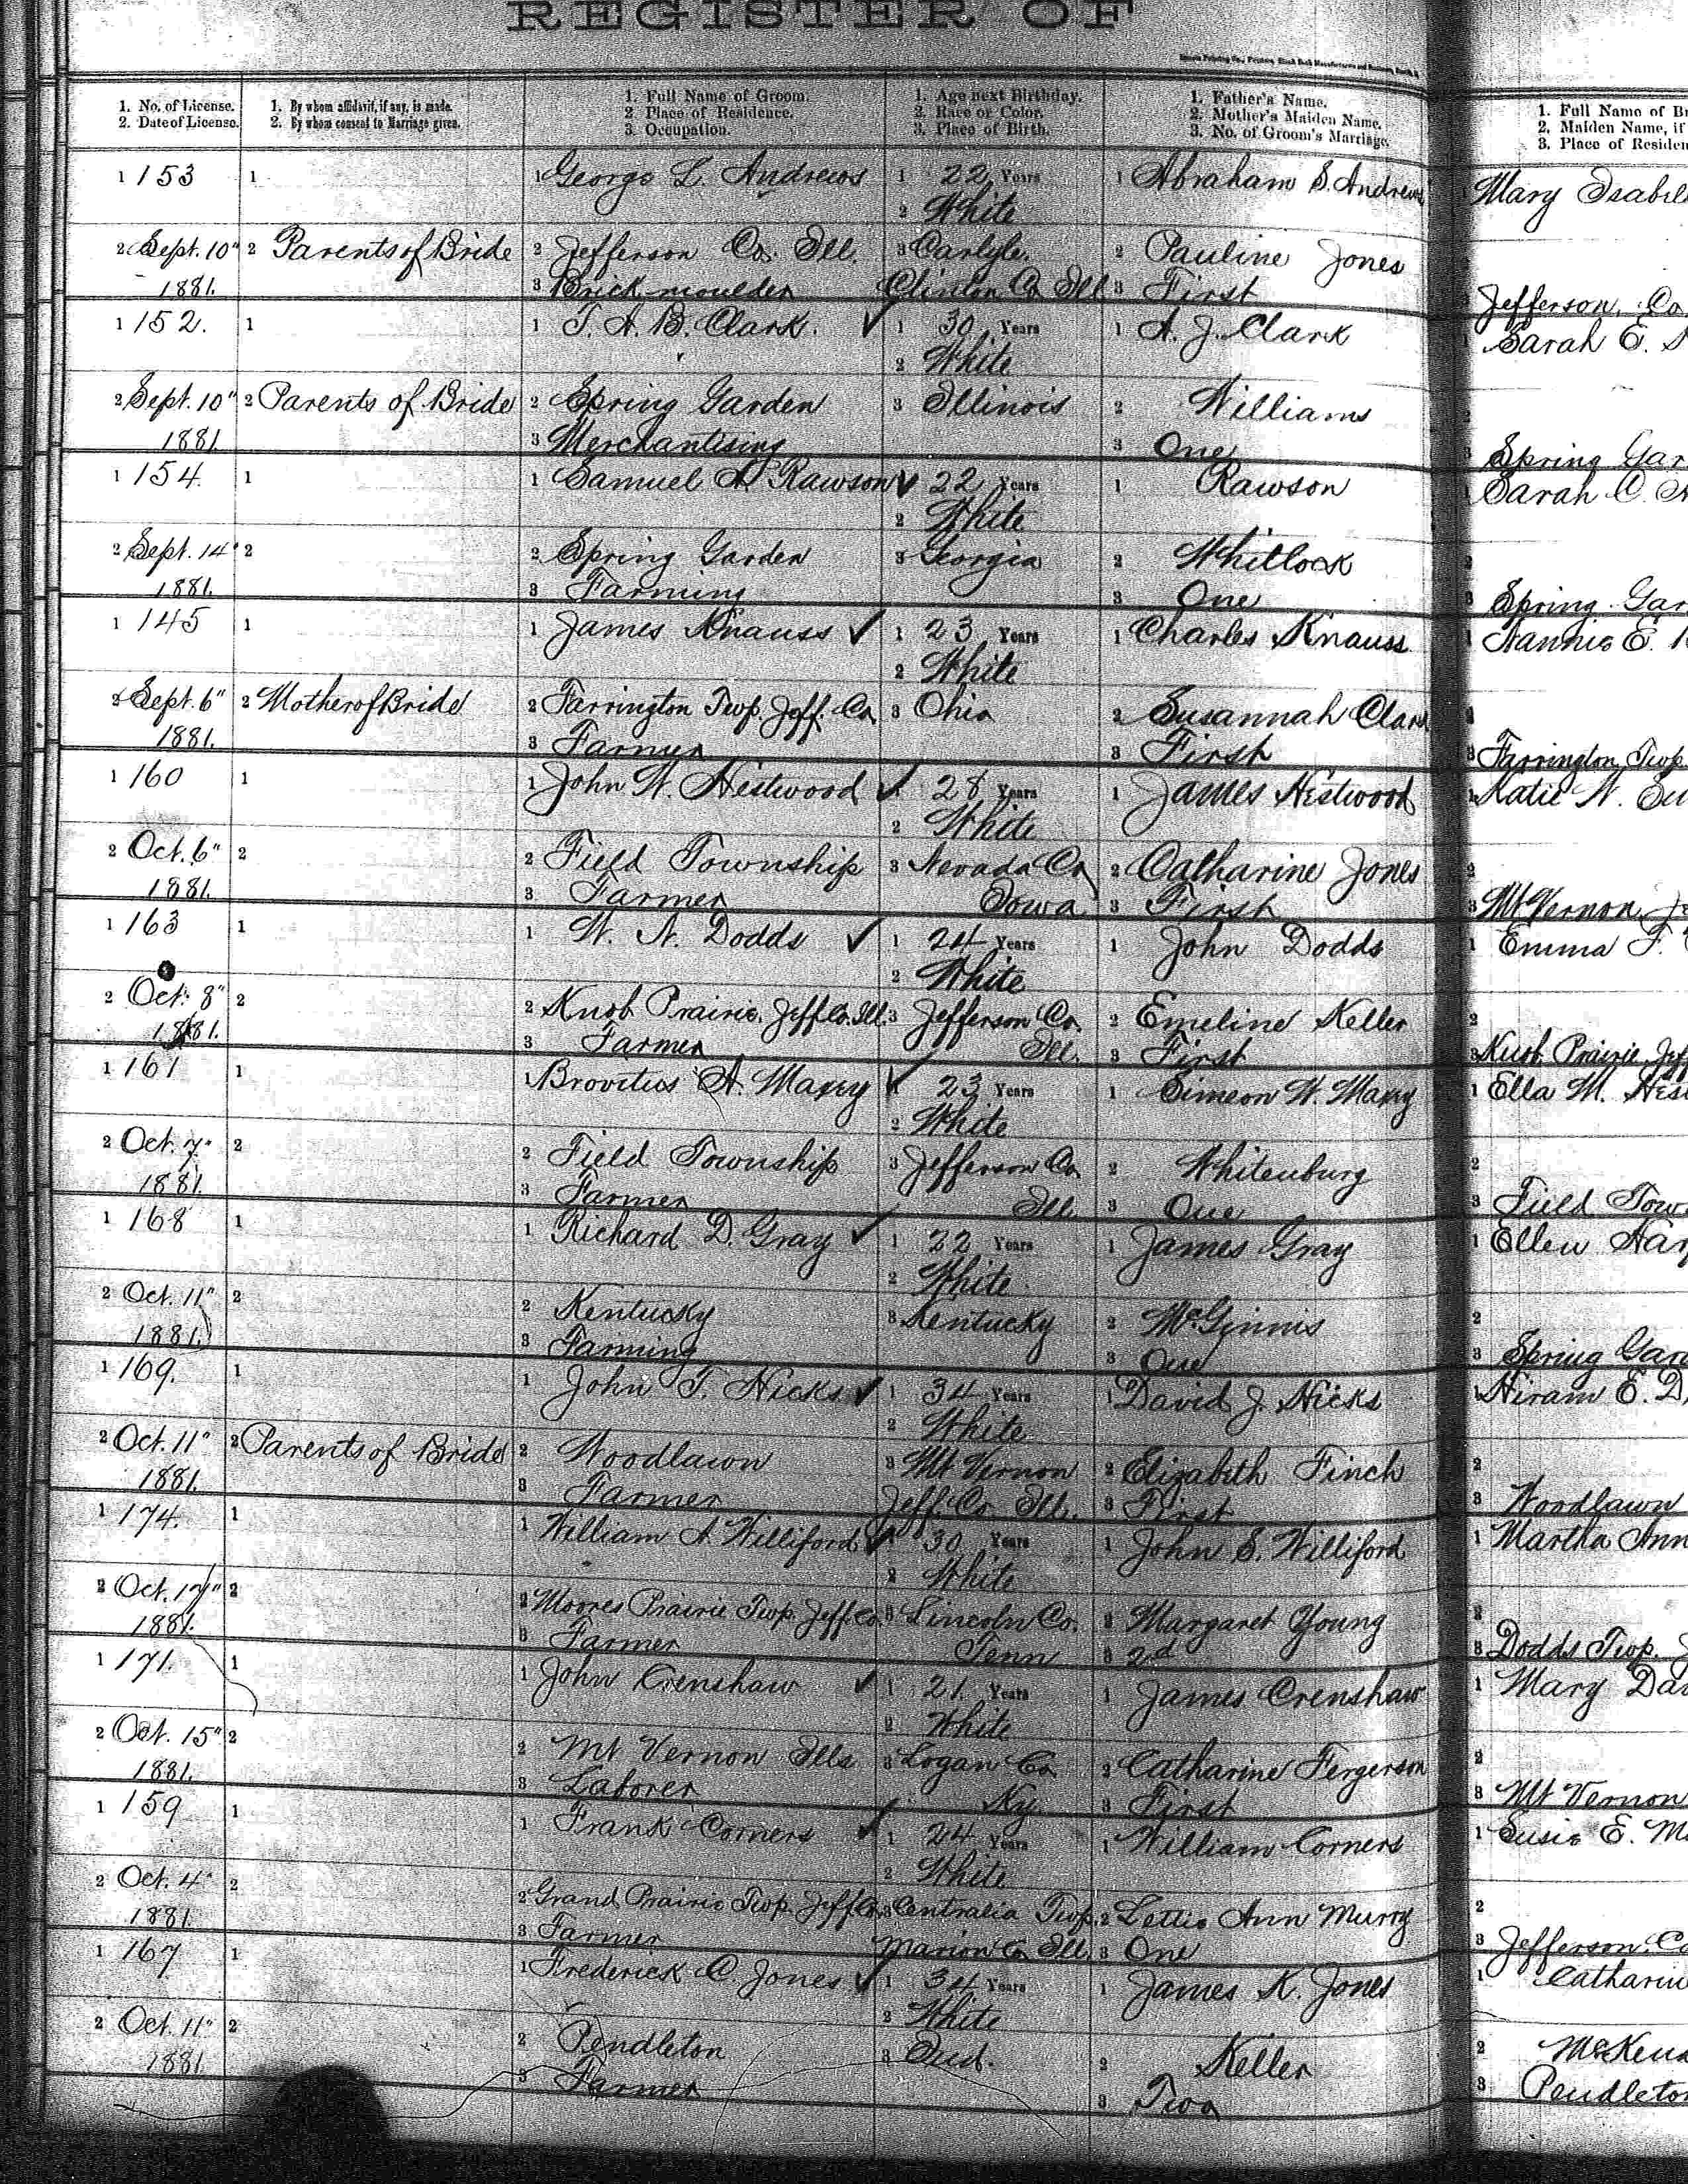 REGISTER OF
1. No. of License.
2. Date of License.
1. By whom affidavit, if any, is made.
2. By whom consent to Marriage given.
1. Full Name of Groom.
2 Place of Residence.
3. Occupation.
1. Age next Birthday.
2. Race or Color.
3. Place of Birth.
1. Father's Name.
2. Mother's Maiden Name.
3. No. of Groom's Marriage.
1. Full Name of Br
2. Maiden Name, if
3. Place of Residen
1 153 1 1 George L. Andrews 1 22 Years 1 Abraham S. Andrews 1 Mary Isabel
2 White
2 Sept. 10" 2 Parents of Bride 2 Jefferson Co. Ill. 3 Carlyle. 2 Pauline Jones
1881. 3 Brick-moulder Clinton Co Ill 3 First 3 Jefferson, Co.
1 152. 1 1 T. A. B. Clark. ✓ 1 30 Years 1 A. J. Clark 1 Sarah E.
2 White
2 Sept. 10" 2 Parents of Bride 2 Spring Garden 3 Illinois 2 Williams 2
1881. 3 Merchantising 3 One 3 Spring Gar
1 154. 1 1 Samuel A. Rawson ✓ 22 Years 1 Rawson 1 Sarah C.
2 White
2 Sept. 14" 2 2 Spring Garden 3 Georgia 2 Whitlock 2
1881. 3 Farming 3 One 3 Spring Gar
1 145 1 1 James Knauss ✓ 1 23 Years 1 Charles Knauss 1 Nannie E.
2 White
2 Sept. 6" 2 Mother of Bride 2 Farrington Twp. Jeff. Co 3 Ohio 2 Susannah Clark 2
1881. 3 Farmer 3 First 3 Farrington Twp
1 160 1 1 John W. Hestwood ✓ 28 Years 1 James Hestwood 1 Katie N.
2 White
2 Oct. 6" 2 2 Field Township 3 Nevada Co 2 Catharine Jones 2
1881. 3 Farmer Iowa 3 First 3 Mt Vernon
1 163 1 1 W. N. Dodds ✓ 1 24 Years 1 John Dodds 1 Emma F.
2 White
2 Oct. 8" 2 2 Knob Prairie, Jeff Co. Ill. 3 Jefferson Co. 2 Emeline Keller 2
1881. 3 Farmer Ill. 3 First 3 Knob Prairie, Jeff
1 161 1 1 A. Maxey ✓ 23 Years 1 Simeon W. Maxey 1 Ella M. Hest
2 White
2 Oct. 7" 2 2 Field Township 3 Jefferson Co 2 Whitenburg 2
1881. 3 Farmer Ill. 3 One 3 Field Tow
1 168 1 1 Richard D. Gray ✓ 1 22 Years 1 James Gray 1 Ellen Har
2 White
2 Oct. 11" 2 2 Kentucky 3 Kentucky 2 McGinnis 2
1881. 3 Farming 3 One 3 Spring Gard
1 169. 1 1 John T. Hicks ✓ 1 34 Years 1 David J. Hicks 1 Hiram E. D
2 White
2 Oct. 11" 2 Parents of Bride 2 Woodlawn 3 Mt Vernon 2 Elizabeth Finch 2
1881. 3 Farmer Jeff. Co. Ill. 3 First 3 Woodlawn
1 174. 1 1 William A. Williford ✓ 30 Years 1 John S. Williford 1 Martha Ann
2 White
2 Oct. 17" 2 2 Moores Prairie Twp. Jeff Co. 3 Lincoln Co. 2 Margaret Young 2
1881. 3 Farmer Tenn 3 2d 3 Dodds Twp. J
1 171. 1 1 John Crenshaw ✓ 1 21 Years 1 James Crenshaw 1 Mary Da
2 White
2 Oct. 15" 2 2 Mt Vernon Ills 3 Logan Co 2 Catharine Fergerson 2
1881. 3 Laborer Ky. 3 First 3 Mt Vernon
1 159 1 1 Frank Corners ✓ 1 24 Years 1 William Corners 1 Susie E. M
2 White
2 Oct. 4" 2 2 Grand Prairie Twp. Jeff Co. 3 Centralia Twp. 2 Lettie Ann Murry 2
1881. 3 Farmer Marion Co. Ill 3 One 3 Jefferson. Co
1 167 1 1 Frederick C. Jones ✓ 1 34 Years 1 James K. Jones 1 Catharin
2 White
2 Oct. 11" 2 2 Pendleton 3 Ind. 2 Keller 2 McKen
1881 3 Farmer 3 Two 3 Pendleton